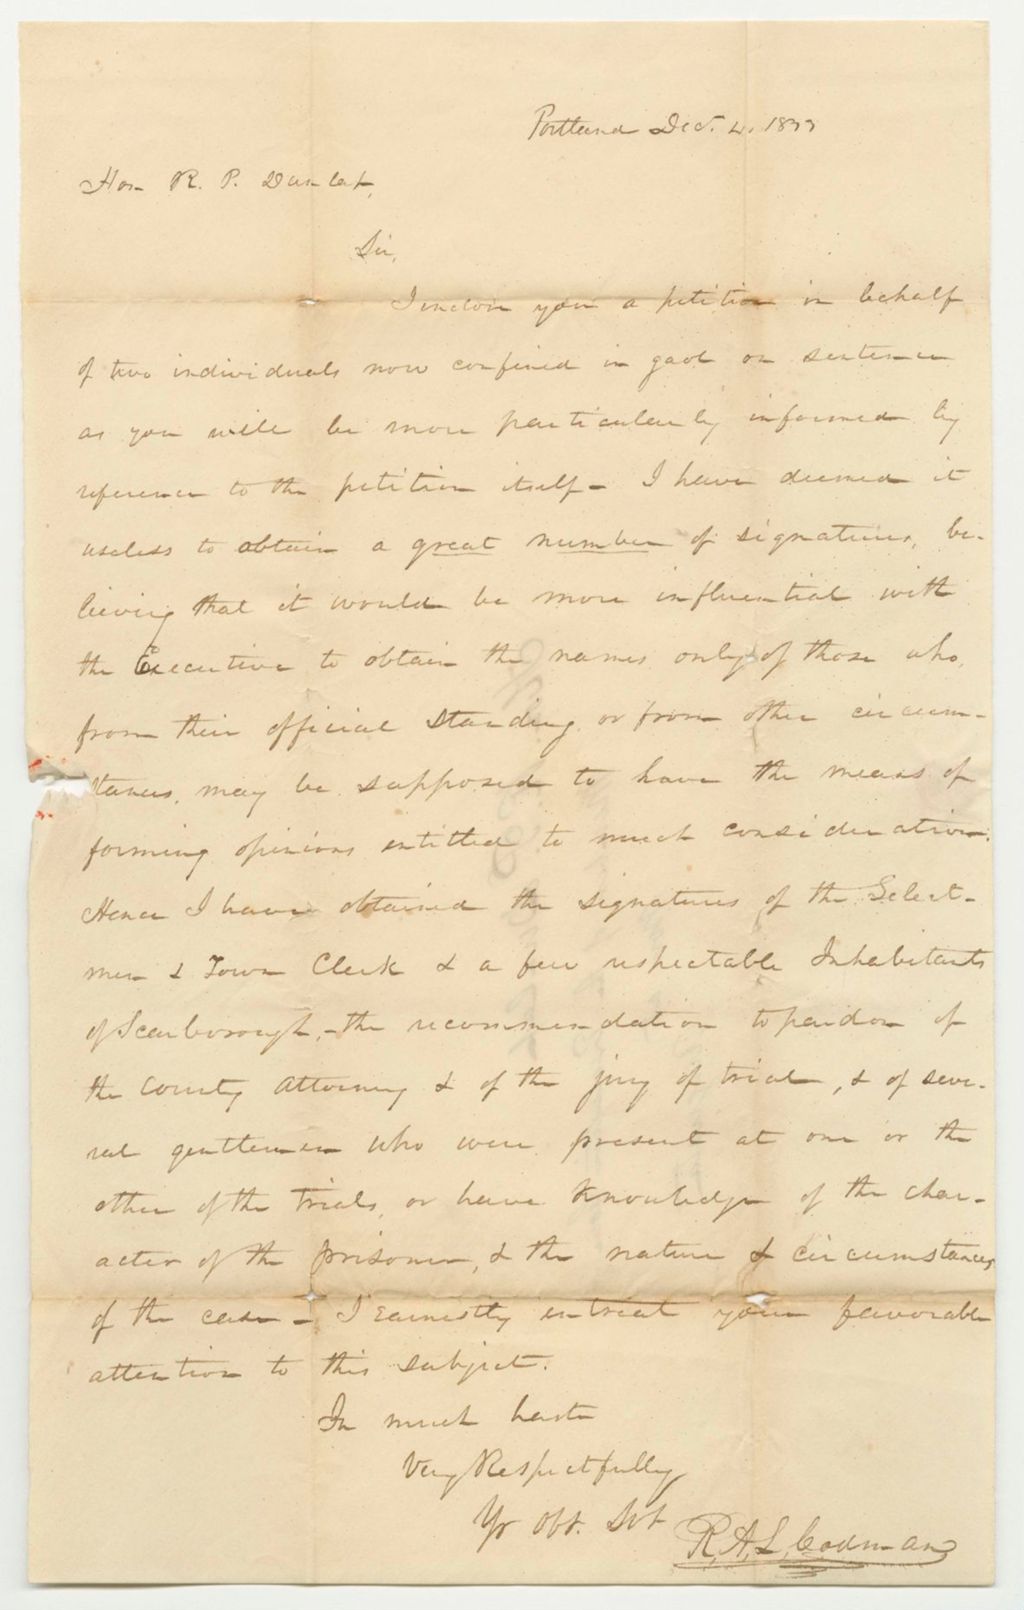 Portland Dec. 4. 1833
Hon R. P. Dunlap,
Sir,
I inclose you a petition in behalf
of two individuals now confined in gaol on sentence
as you will be more particularly informed by
reference to the petition itself - I have deemed it
useless to obtain a great number of signatures, be-
lieving that it would be more influential with
the Executive to obtain the names only of those who,
from their official standing or from other circum-
stances, may be supposed to have the means of
forming opinions entitled to much consideration.
Hence I have obtained the signatures of the Select-
men & Town Clerk & a few respectable Inhabitants
of Scarborough, - the recommendation to pardon of
the County Attorney & of the jury of trial, & of seve-
ral gentlemen who were present at one or the
other of the trials, or have knowledge of the char-
acter of the prisoner, & the nature & circumstances
of the case - I earnestly entreat your favorable
attention to this subject.
In much haste
Very Respectfully
Yr Obt. Svt
R. A. L. Codman